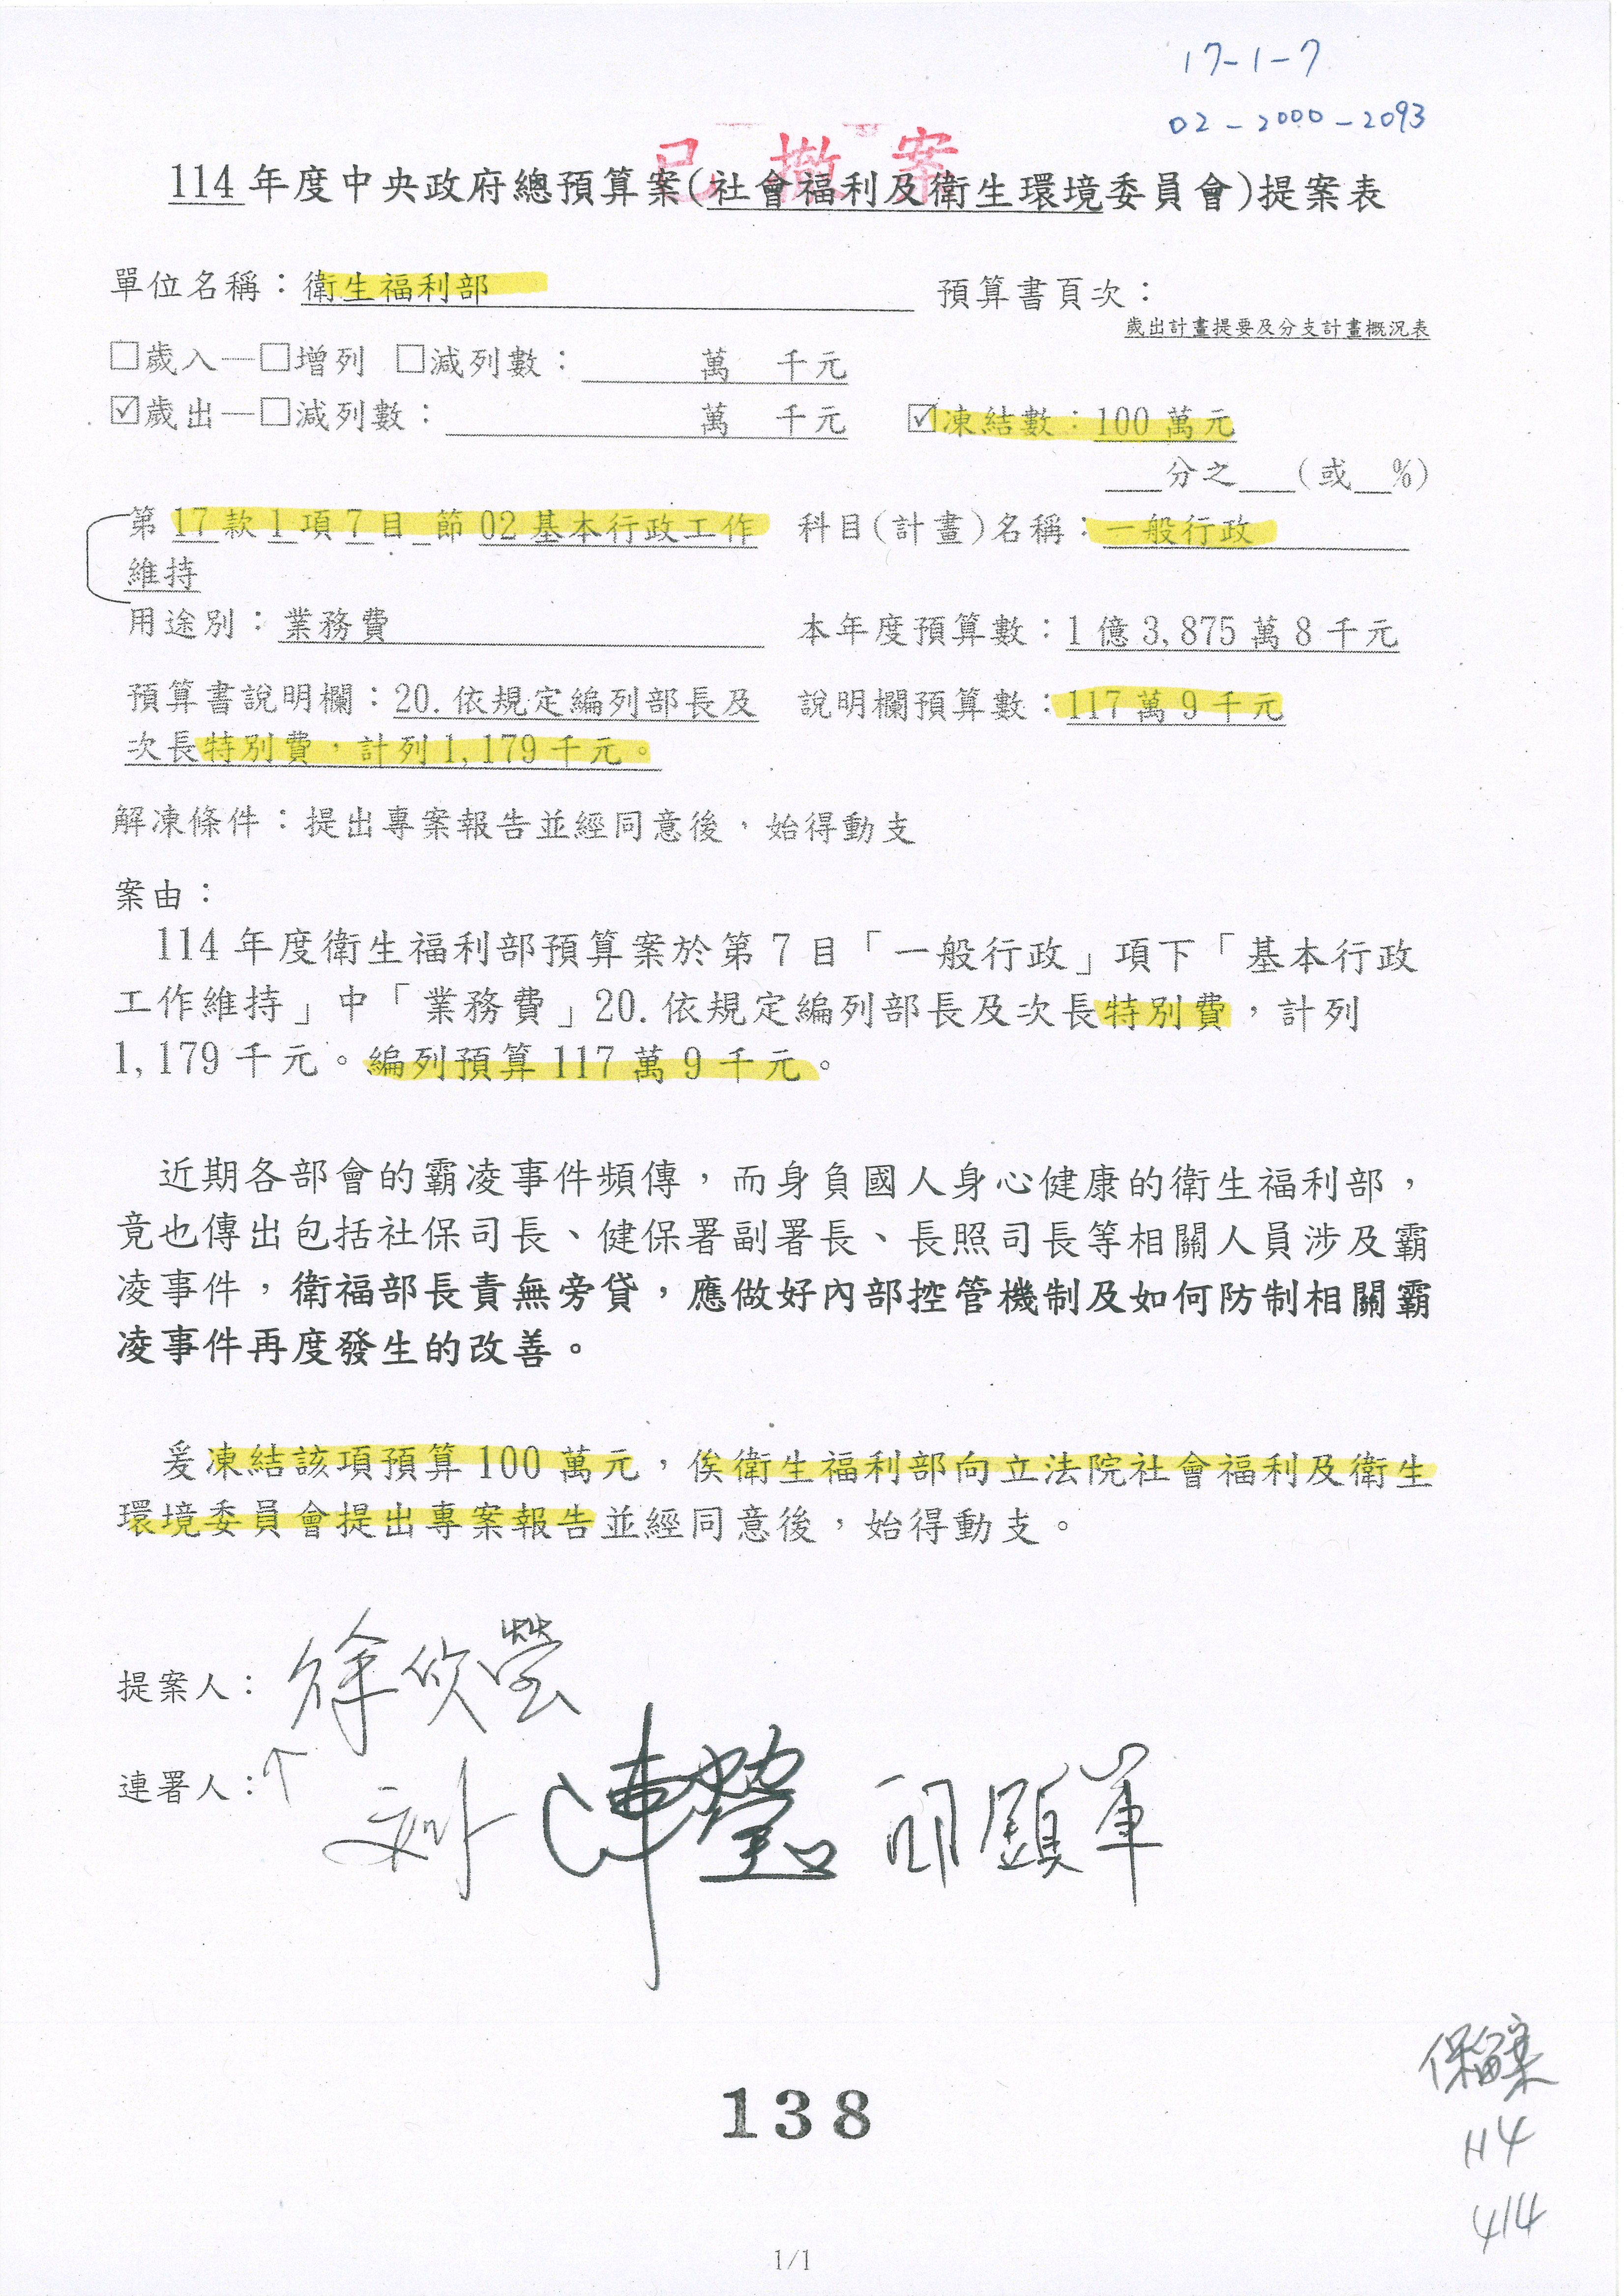 17-1-7
02-2000-2093
已撤案
114年度中央政府總預算案(社會福利及衛生環境委員會)提案表
單位名稱：衛生福利部 預算書頁次：
歲出計畫提要及分支計畫概況表
□歲入—□增列 □減列數： 萬 千元
☑歲出—□減列數： 萬 千元 ☑凍結數：100萬元
＿分之＿(或＿%)
第17款1項7目_節02基本行政工作 科目(計畫)名稱：一般行政
維持
用途別：業務費 本年度預算數：1億3,875萬8千元
預算書說明欄：20.依規定編列部長及 說明欄預算數：117萬9千元
次長特別費，計列1,179千元。
解凍條件：提出專案報告並經同意後，始得動支
案由：
114年度衛生福利部預算案於第7目「一般行政」項下「基本行政
工作維持」中「業務費」20.依規定編列部長及次長特別費，計列
1,179千元。編列預算117萬9千元。
近期各部會的霸凌事件頻傳，而身負國人身心健康的衛生福利部，
竟也傳出包括社保司長、健保署副署長、長照司長等相關人員涉及霸
凌事件，衛福部長責無旁貸，應做好內部控管機制及如何防制相關霸
凌事件再度發生的改善。
爰凍結該項預算100萬元，俟衛生福利部向立法院社會福利及衛生
環境委員會提出專案報告並經同意後，始得動支。
提案人：徐欣瑩
連署人：
138
保留案
114
414
1/1